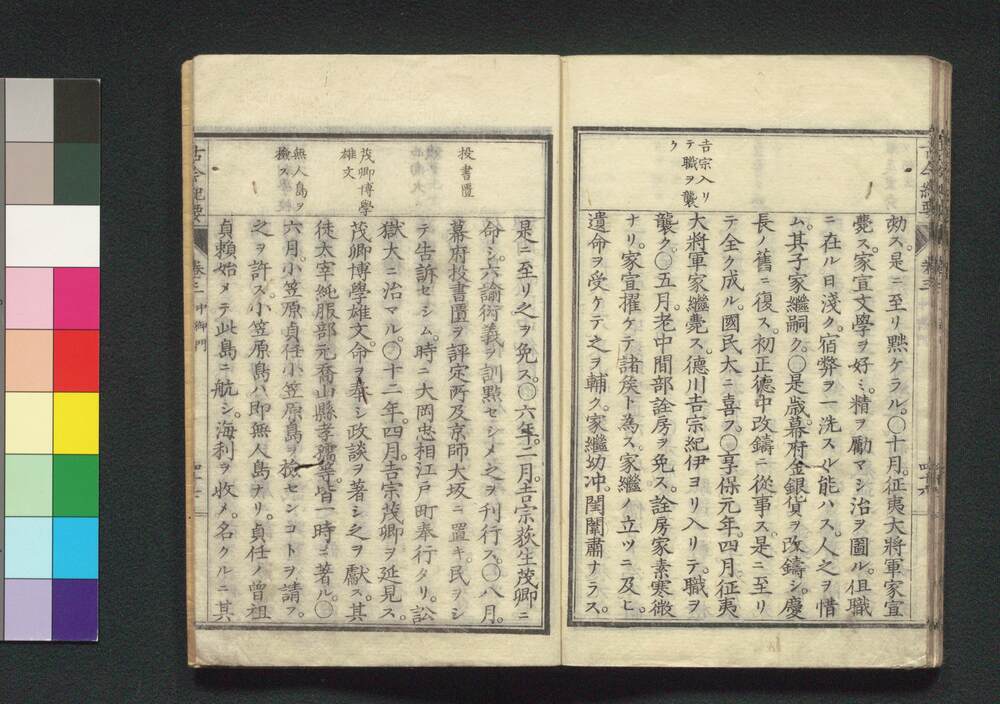 吉宗入リ
テ職ヲ襲
ク
劾ス。是ニ至リ黙ケラル。〇十月。征夷大將軍家宣
薨ス。家宣文學ヲ好ミ。精ヲ勵マシ治ヲ圖ル。但職
ニ在ル日淺ク。宿弊ヲ一洗スル能ハス。人之ヲ惜
ム。其子家繼嗣ク。〇是歳。幕府金銀貨ヲ改鑄シ。慶
長ノ舊ニ復ス。初正德中改鑄ニ從事ス。是ニ至リ
テ全ク成ル。國民大ニ喜フ。〇享保元年。四月。征夷
大將軍家繼薨ス。德川吉宗紀伊ヨリ入リテ。職ヲ
襲ク。〇五月。老中間部詮房ヲ免ス。詮房家素寒微
ナリ。家宣擢ケテ諸矦ト為ス。家繼ノ立ツニ及ヒ。
遺命ヲ受ケテ之ヲ輔ク。家繼幼冲。閨闈肅ナラス。
投書匱
茂卿博學
雄文
無人島ヲ
撿ス
是ニ至リ之ヲ免ス。〇六年。二月。吉宗荻生茂卿ニ
命シ。六諭衍義ヲ訓點セシメ之ヲ刊行ス。〇八月。
幕府投書匱ヲ評定所及京師大坂ニ置キ。民ヲシ
テ告訴セシム。時ニ大岡忠相江戸町奉行タリ。訟
獄大ニ治マル。〇十二年。四月。吉宗茂卿ヲ延見ス。
茂卿博學雄文。命ヲ奉シ政談ヲ著シ之ヲ獻ス。其
徒太宰純服部元喬山縣孝孺等皆一時ニ著ル。〇
六月。小笠原貞任小笠原島ヲ撿センコトヲ請フ。
之ヲ許ス。小笠原島ハ即無人島ナリ。貞任ノ曾祖
貞賴始メテ此島ニ航シ。海利ヲ收メ名クルニ其
古今紀要
卷三
中御門